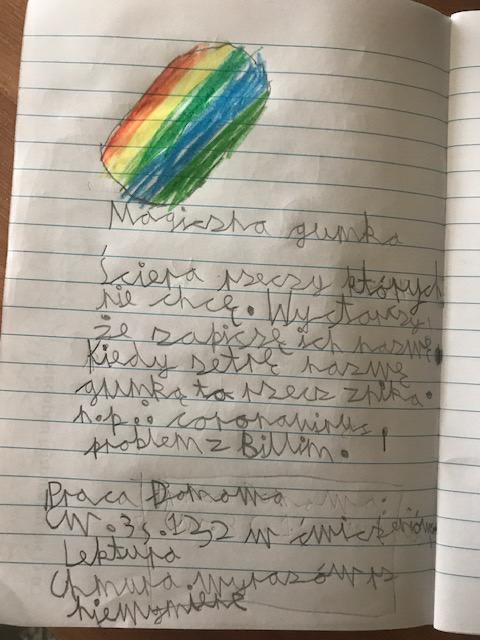 Magiczna gumka
Ściera rzeczy których
nie chcę. Wystarczy,
że zapiszę ich nazwę.
Kiedy zetrę nazwę
gumką to rzecz znika.
np.: coronavirus,
problem z Billim.
Praca Domowa
ćw. 3 s. 132 w
Lektura
Chmura wyrazów